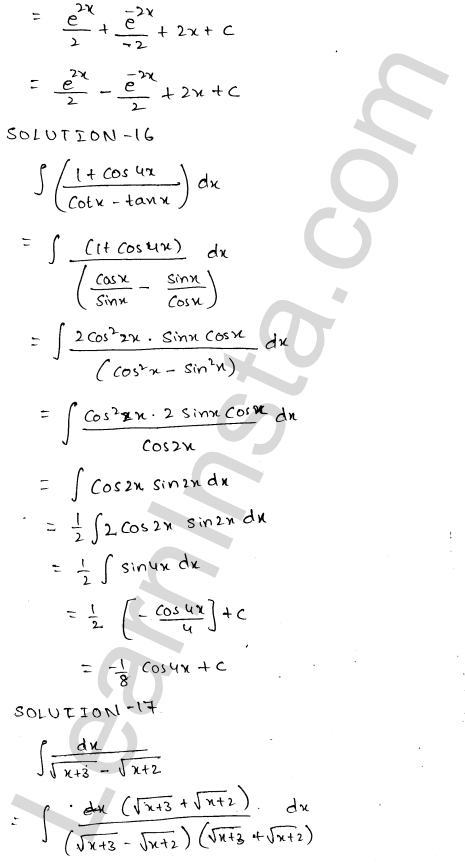 = e^{2x}/2 + e^{-2x}/-2 + 2x + C
= e^{2x}/2 - e^{-2x}/2 + 2x + C
SOLUTION-16
∫ ( (1 + cos 4x) / (cotx - tanx) ) dx
= ∫ (1 + cos 4x) / ( cosx/sinx - sinx/cosx ) dx
= ∫ 2cos²2x · sinx cosx / (cos²x - sin²x) dx
= ∫ cos²2x · 2 sinx cosx / cos2x dx
= ∫ cos2x sin2x dx
= 1/2 ∫ 2 cos2x sin2x dx
= 1/2 ∫ sin4x dx
= 1/2 [ - cos4x/4 ] + C
= -1/8 cos4x + C
SOLUTION-17
∫ dx / (√(x+3) - √(x+2))
= ∫ (√(x+3) + √(x+2)) / (√(x+3) - √(x+2)) (√(x+3) + √(x+2)) dx
LearnInsta.com